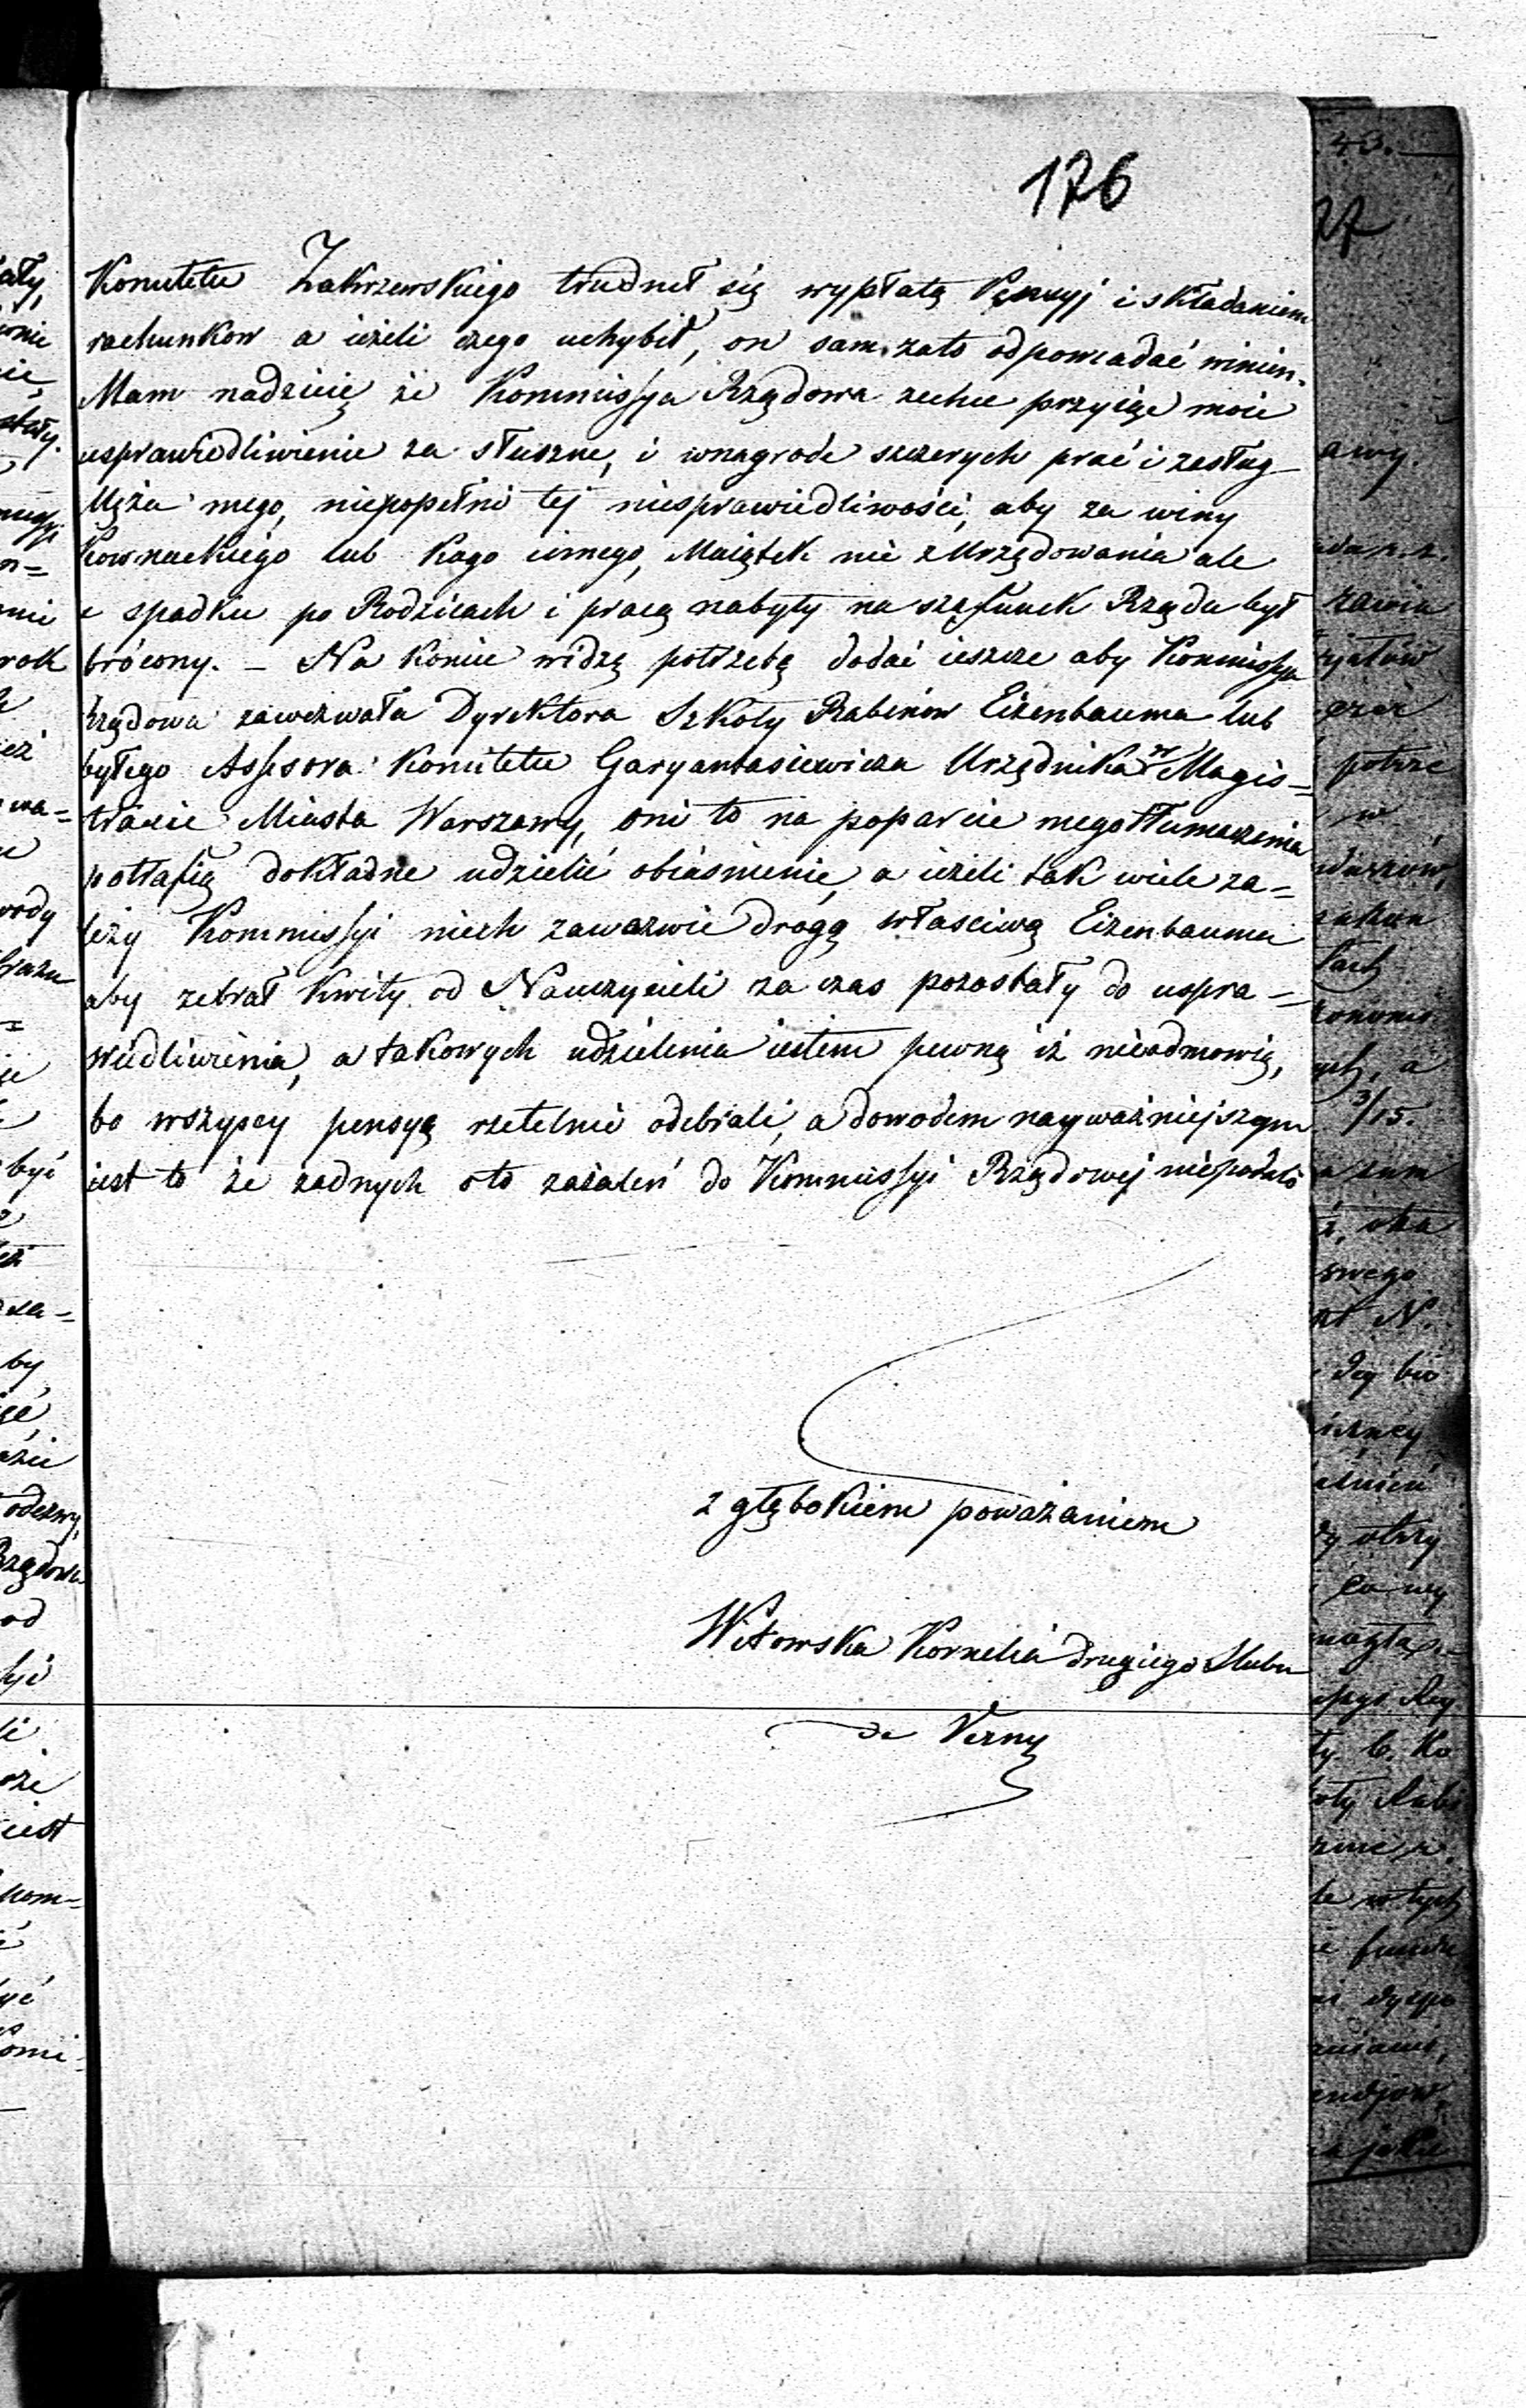 176
Komitetu Zakrzewskiego trudnił się wypłatą Pęnsyj i składaniem
rachunkow a ieżeli czego uchybił, on sam zato odpowiadać winien.
Mam nadzieię że Kommissya Rządowa zechce przyiąć moie
usprawiedliwienie za słuszne, i wnagrodę szczerych prac i zasług
Męża mego, niepopełni tej niesprawiedliwości, aby za winy
Kownackiego lub Kogo innego, Maiątek nie z Urzędowania ale
z spadku po Rodzicach i pracą nabyty na szafunek Rządu był
brócony. – Na Koniec widzę potrzebę dodać ieszcze aby Kommissya
Rządowa zawezwała Dyrektora Szkoły Rabinów Eizenbauma lub
byłego Assesora Komitetu Garyantasiewicza Urzędnika w Magis=
tracie Miasta Warszawy, oni to na poparcie mego tłumaczenia
potrafią dokładne udzielić obiaśnienie, a ieżeli tak wiele za=
leży Kommissyi niech zawezwie drogą właściwą Eizenbauma
aby zebrał Kwity od Nauczycieli za czas pozostały do uspra=
wiedliwienia, a takowych udzielenia iestem pewną iż nieodmowią,
bo wszyscy pensyą rzetelnie odebrali, a dowodem nayważniejszym
iest to że żadnych oto zażaleń do Kommissyi Rządowej niepodało
z głębokiem poważaniem
Witowska Kornelia drugiego Slubu
de Verny